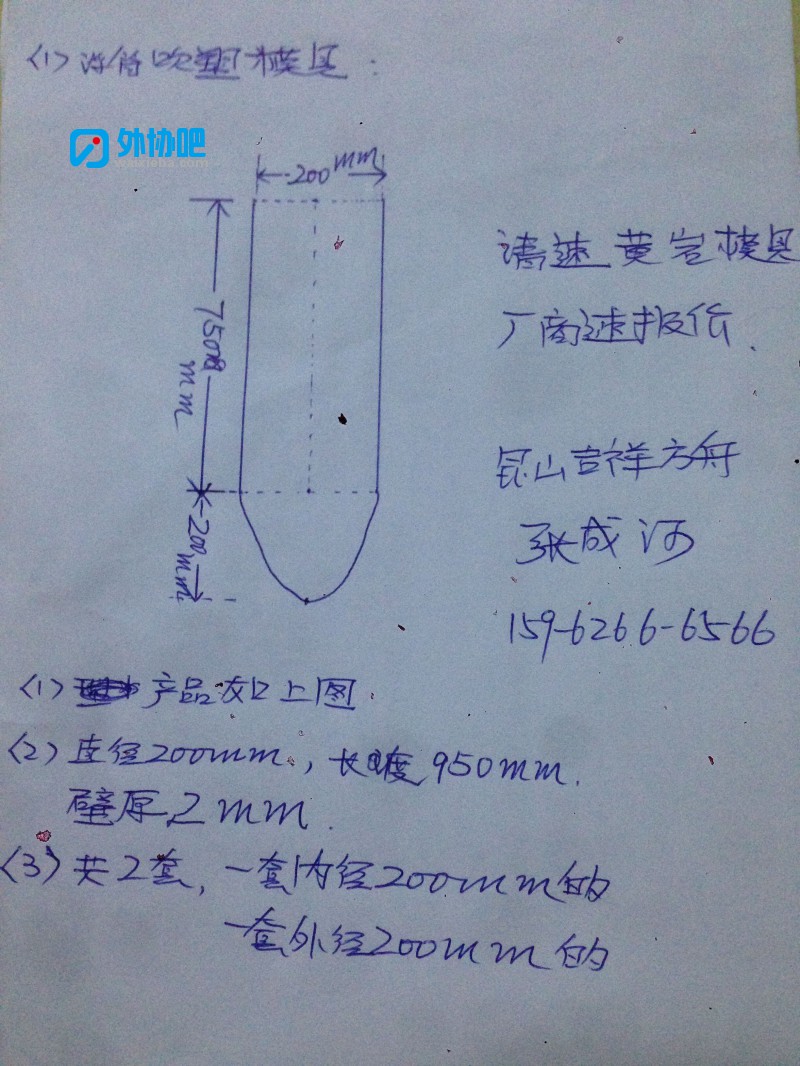 (1) 浮筒吹塑模具:
外协吧
200mm
750mm
200mm
请速黄岩模具
厂商速报价.
昆山吉祥方舟
张成河
159-6266-6566
(1) 产品如上图
(2) 直径200mm, 长度950mm.
壁厚2mm.
(3) 共2套, 一套内径200mm的
一套外径200mm的